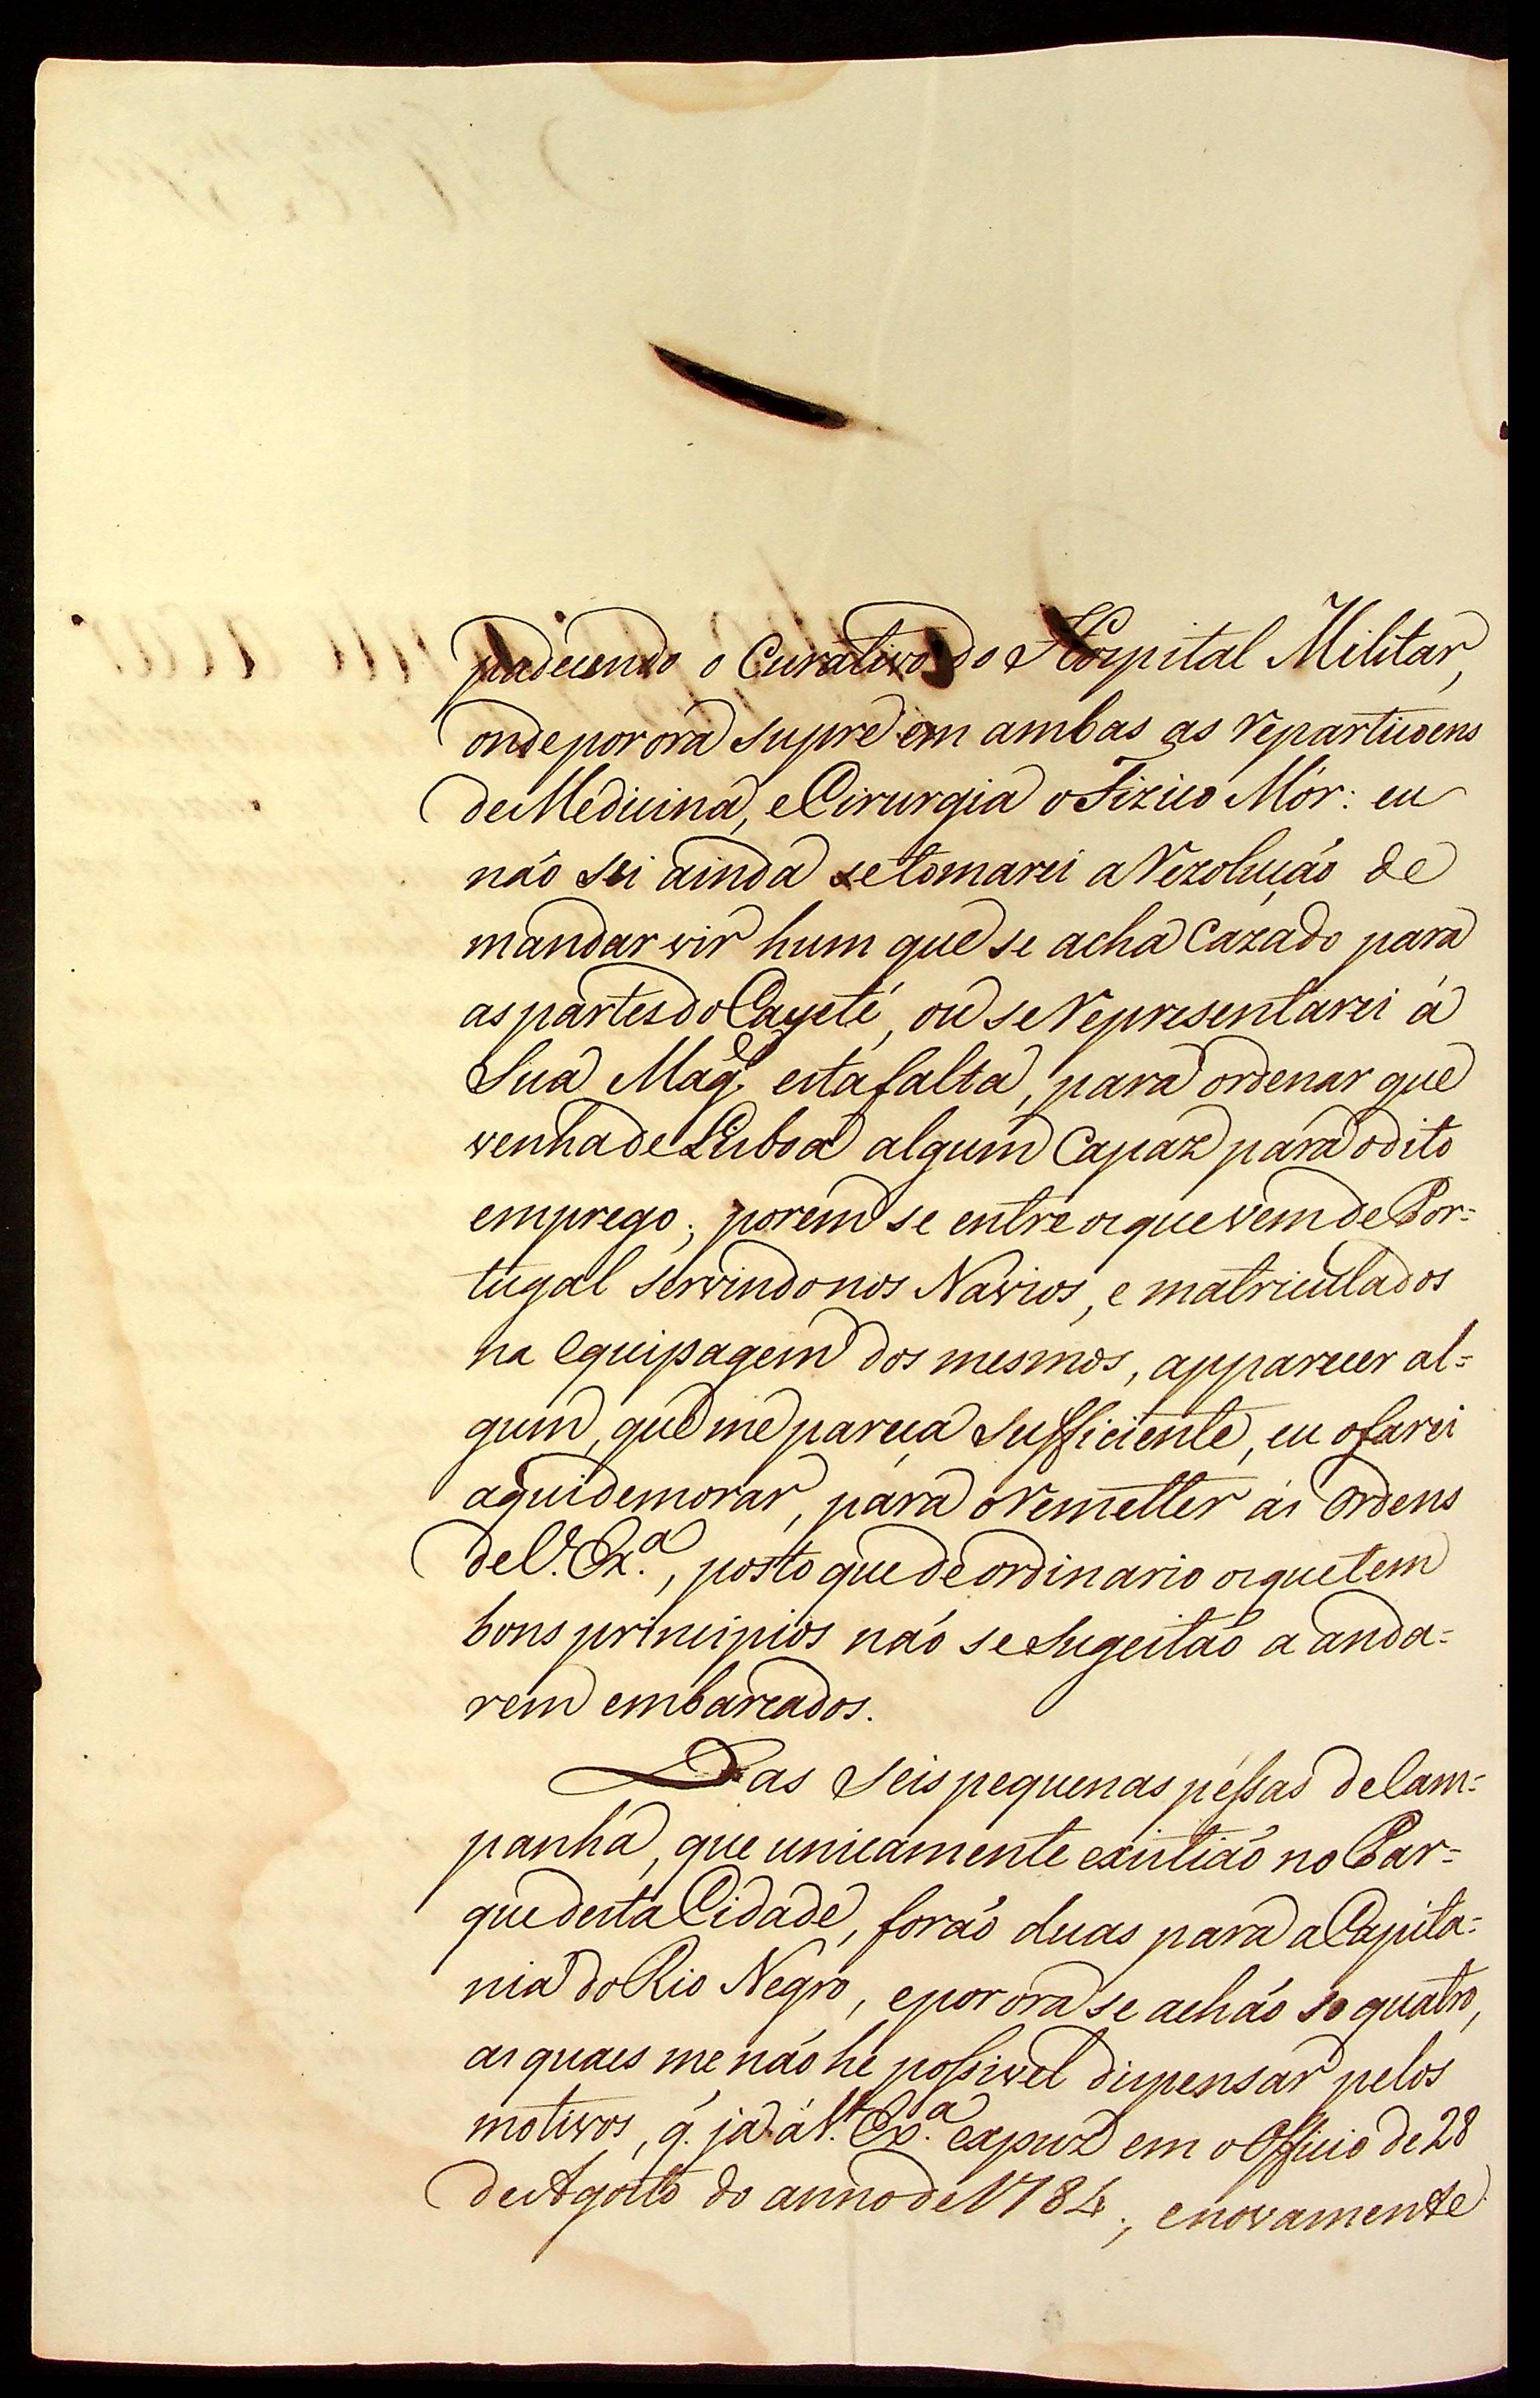 padecendo o Curativo do Hospital Militar,
onde por ora supre em ambas as repartiçoens
de Medicina, e Cirurgia o Fizico Mór: eu
não sei ainda se tomarei a rezolução de
mandar vir hum que se acha Cazado para
as partes do Cayeté, ou se representarei á
Sua Mag.e esta falta, para ordenar que
venha de Lisboa algum Capaz para o dito
emprego; porem se entre os que vem de Por=
tugal servindo nos Navios, e matriculados
na equipagem dos mesmos, apparecer al=
gum, que me pareça sufficiente, eu o farei
aqui demorar, para o remetter ás Ordens
de V. Ex.a, posto que de ordinario os que tem
bons principios não se sugeitão a anda=
rem embarcados.
Das seis pequenas péssas de Cam=
panha, que unicamente existião no Par=
que desta Cidade, forão duas para a Capita=
nia do Rio Negro, e por ora se achão só quatro,
as quaes me não he possivel dispensar pelos
motivos, q. ja á V. Ex.a expuz em o Officio de 28
de Agosto do anno de 1784; e novamente